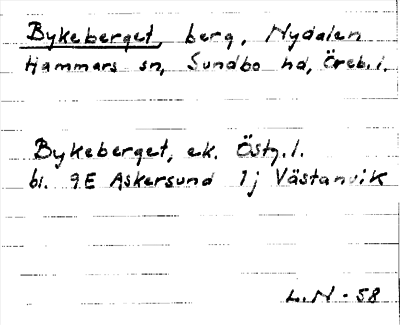 Bykeberget, berg, Nydalen
Hammars sn, Sundbo hd, Öreb. l.
Bykeberget, ek. Östg. l.
bl. 9E Askersund 1j Västanvik
L.N - 58